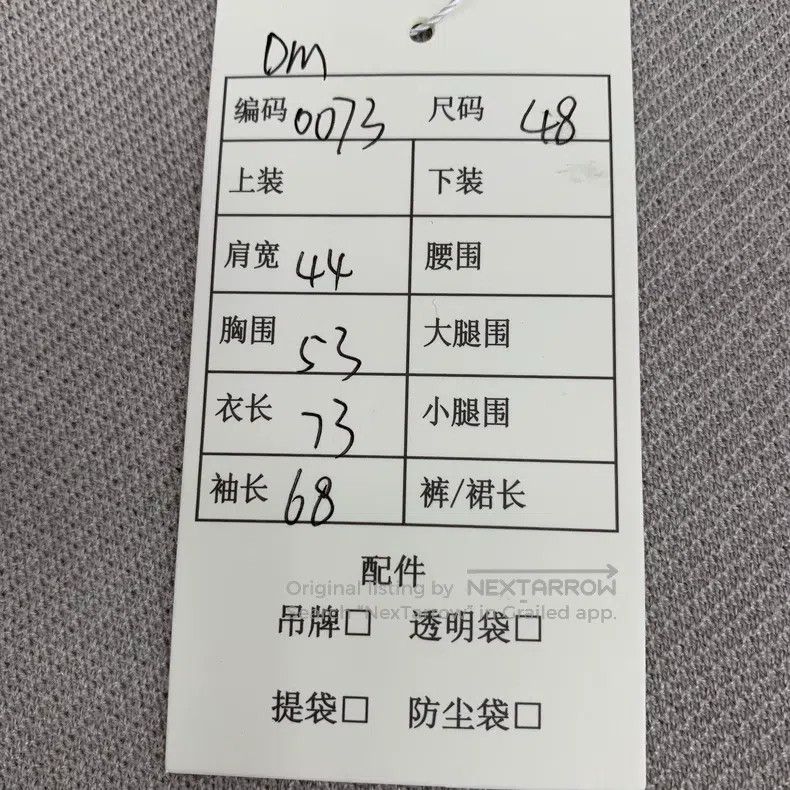 DM
编码 0073 尺码 48
上装 下装
肩宽 44 腰围
胸围 53 大腿围
衣长 73 小腿围
袖长 68 裤/裙长
配件
Original listing by NEXTARROW
Search "NexTarrow" in Grailed app.
吊牌□ 透明袋□
提袋□ 防尘袋□